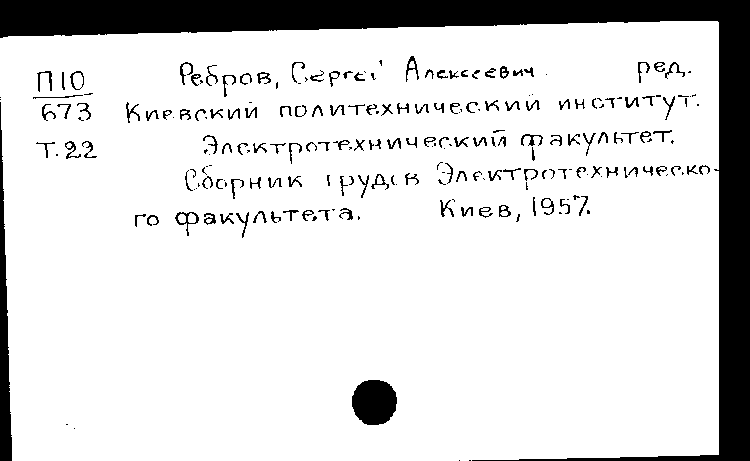 П10 Ребров, Сергей Алексеевич. ред.
673 Киевский политехнический институт.
Т.22 Электротехнический факультет.
Сборник трудов Электротехническо-
го факультета. Киев, 1957.